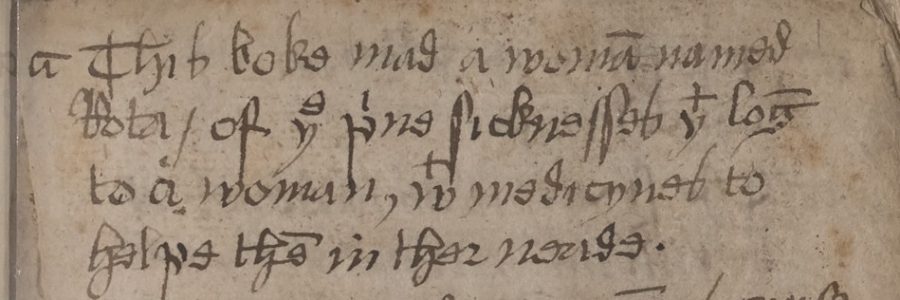 ā This boke mad a womā named
Rota / of yᵉ pⁱue sicknesses yᵗ lōg
to a woman, wᵗ medicynes to
helpe thē in ther neride.